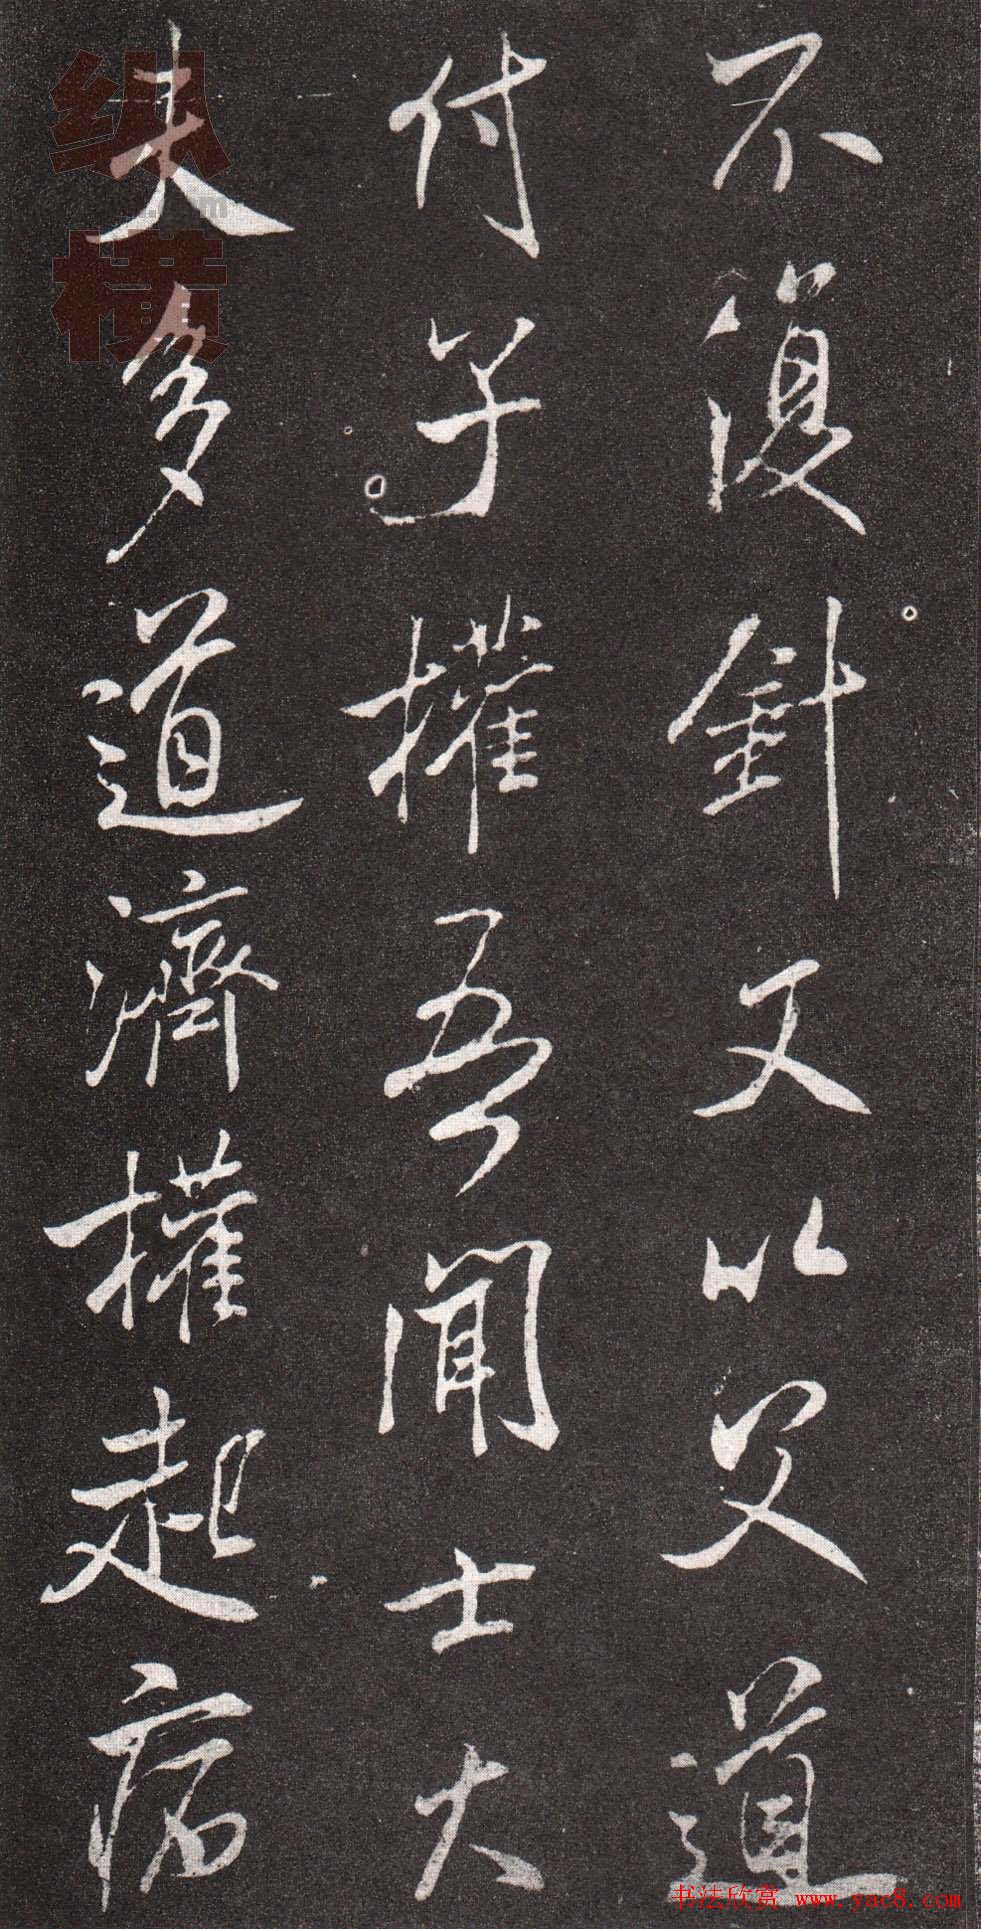 不復針又以父道
付子權吾聞士大
夫多道濟權起病
纵横
书法欣赏 www.yac8.com